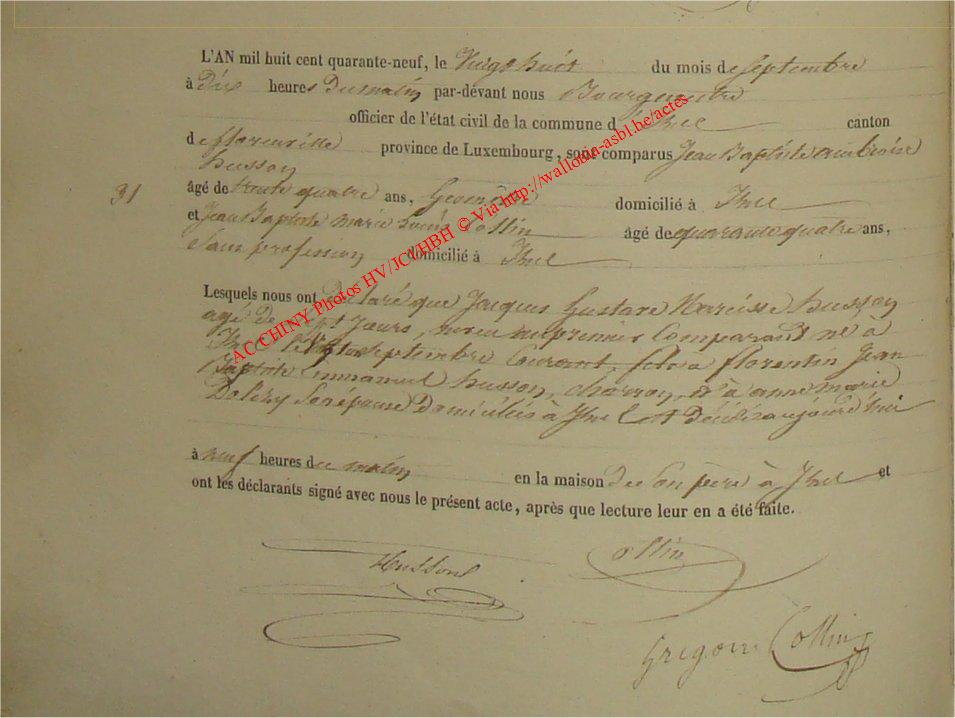 L'AN mil huit cent quarante-neuf, le Vingt huit du mois de Septembre
à Dix heures Du matin par-dévant nous Bourgmestre
officier de l'état civil de la commune d'Izel canton
de florenville province de Luxembourg, sont comparus Jean Baptiste ambroise
husson
31 âgé de trente quatre ans, Géomètre domicilié à Izel
et Jean Baptiste Marie Louis Collin âgé de quarante quatre ans,
Sans profession domicilié à Izel
Lesquels nous ont Déclaré que Jacques Gustave Narcisse husson
agé de Sept Jours, neveu au premier Comparant né à
Izel le Septembre Courant, fils a florentin Jean
Baptiste Emmanuel husson, charron, et à anne marie
Son épouse Domiciliés à Izel Est Décédé aujourd'hui
à neuf heures du matin en la maison de Son père à Izel et
ont les déclarants signé avec nous le présent acte, après que lecture leur en a été faite.
Husson Collin
Gregoire Collin
AC CHINY Photos HV/JCV/HBH © Via http://wallonia-asbl.be/actes